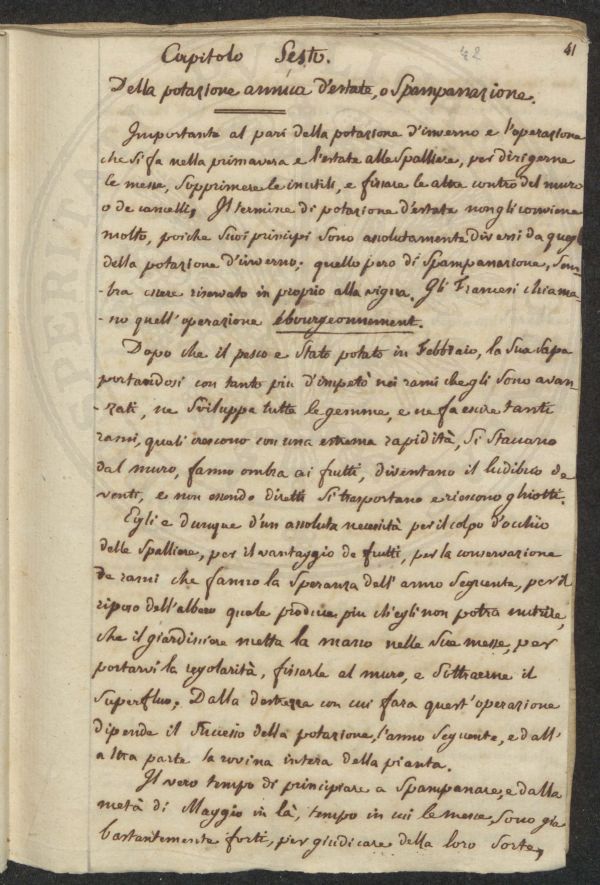 42
41
Capitolo Sesto.
Della potazione annua d'estate, o Spampanazione.
Importante al pari della potazione d'inverno e l'operazione
che si fa nella primavera e l'estate alle Spalliere, per dirigerne
le messe, Supprimere le inutili, e fissare le altre contro del muro
o de cancelli, Il termine di potazione d'estate non gli conviene
molto, poiche Suoi principi sono assolutamente diversi da quegl
della potazione d'inverno; quello pero di Spampanazione, Sem-
-bra essere riservato in proprio alla vigna. Gli Francesi chiama-
-no quell'operazione ébourgeonnement.
Dopo che il pesco e Stato potato in Febbraio, la Sua Sapa
portandosi con tanto piu d'impetò nei rami che gli Sono avan-
-zati, ne Sviluppa tutte le gemme, e ne fa escire tanti
rami, quali crescono con una estrema rapidità, Si staccano
dal muro, fanno ombra ai frutti, diventano il ludibrio de
venti, e non essendo diretti Si trasportano e riescono ghiotti.
Egli e dunque d'un assoluta necessità per il colpo d'occhio
delle Spalliere, per il vantaggio de frutti, per la conservazione
De rami che fanno la Speranza dell'anno Seguente, per il
riposo dell'albero quale produce piu ch'egli non potra nutrire,
che il giardiniere metta la mano nelle Sue messe, per
portarvi la regolarità, fissarle al muro, e Sottraerne il
Superfluo. Dalla destrezza con cui fara quest'operazione
dipende il Successo della potazione, l'anno Seguente, e dall'
altra parte la rovina intera della pianta.
Il vero tempo di principiare a Spampanare, e dalla
metà di Maggio in là, tempo in cui le messe, Sono gia
bastantemente forti, per giudicare della loro Sorte,